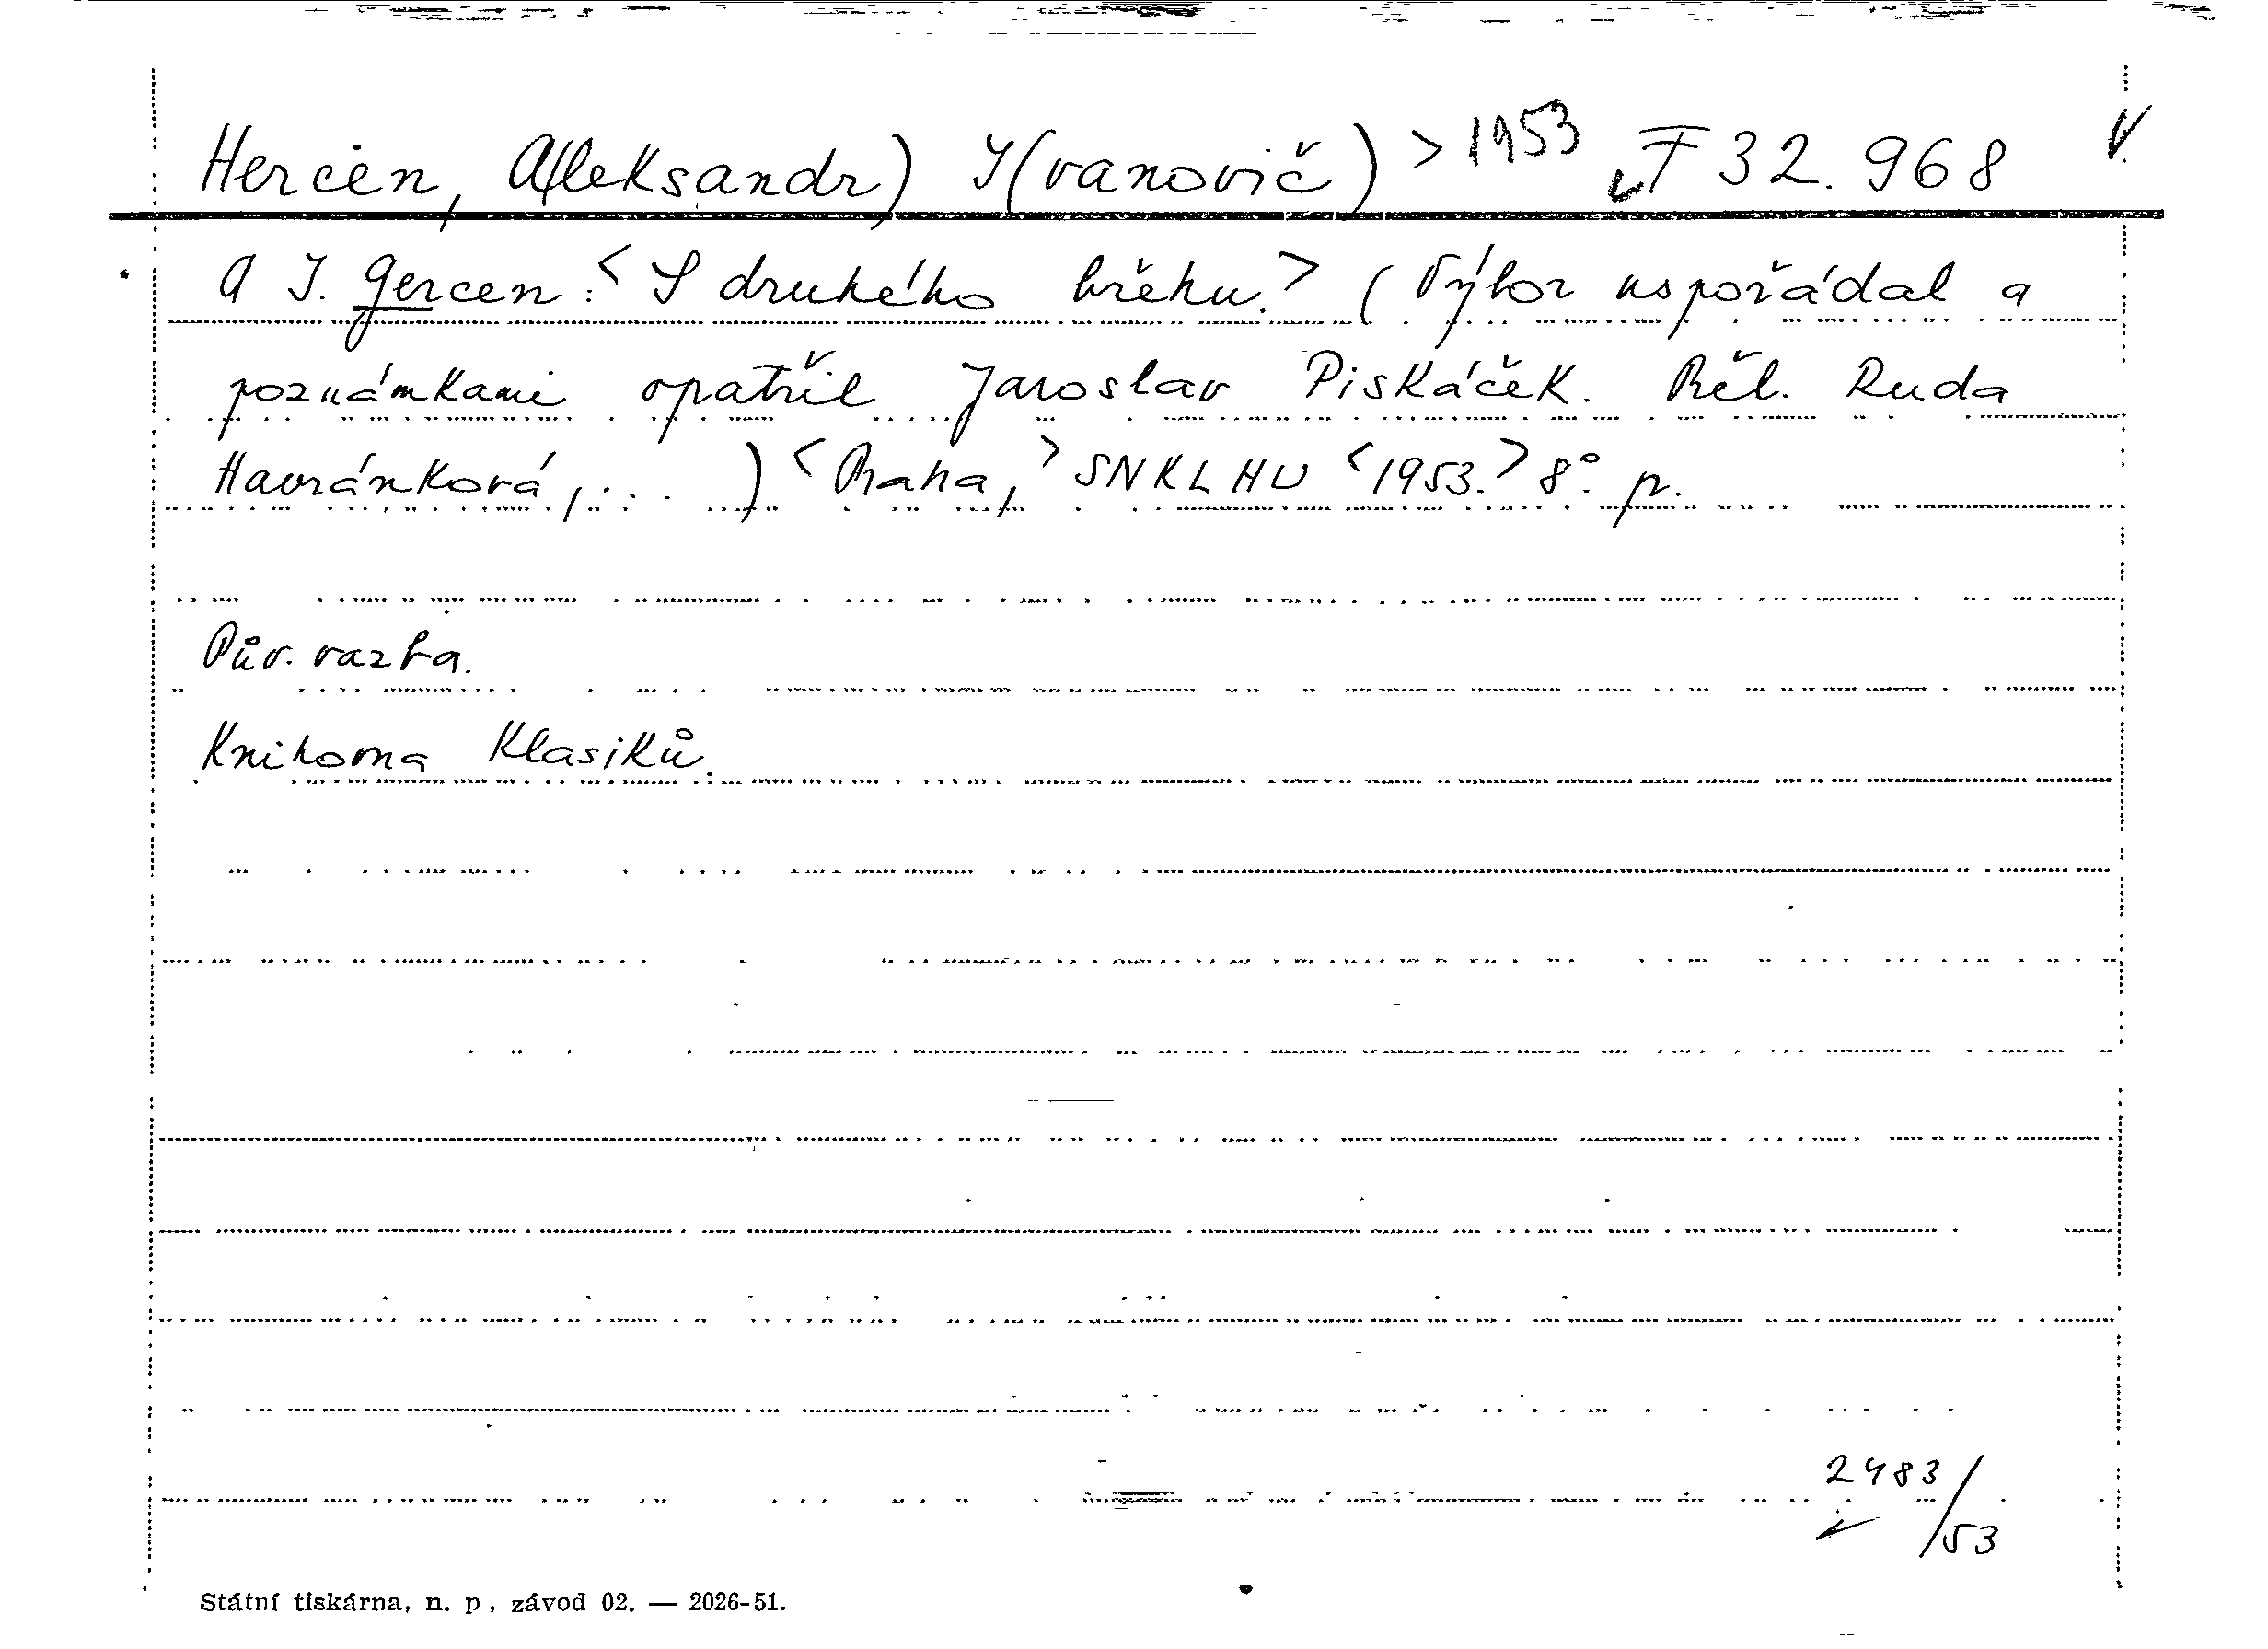 Hercen, A(leksandr) I(vanovič) > 1953 T 32.968
A I. Gercen: <S druhého břehu.> (Výbor uspořádal a
poznámkami opatřil Jaroslav Piskáček. Přel. Ruda
Havránková, ... ) <Praha,> SNKLHU <1953.> 8° p.
Pův. vazba.
Knihovna Klasiků.
2483/53
Státní tiskárna, n. p, závod 02. — 2026-51.